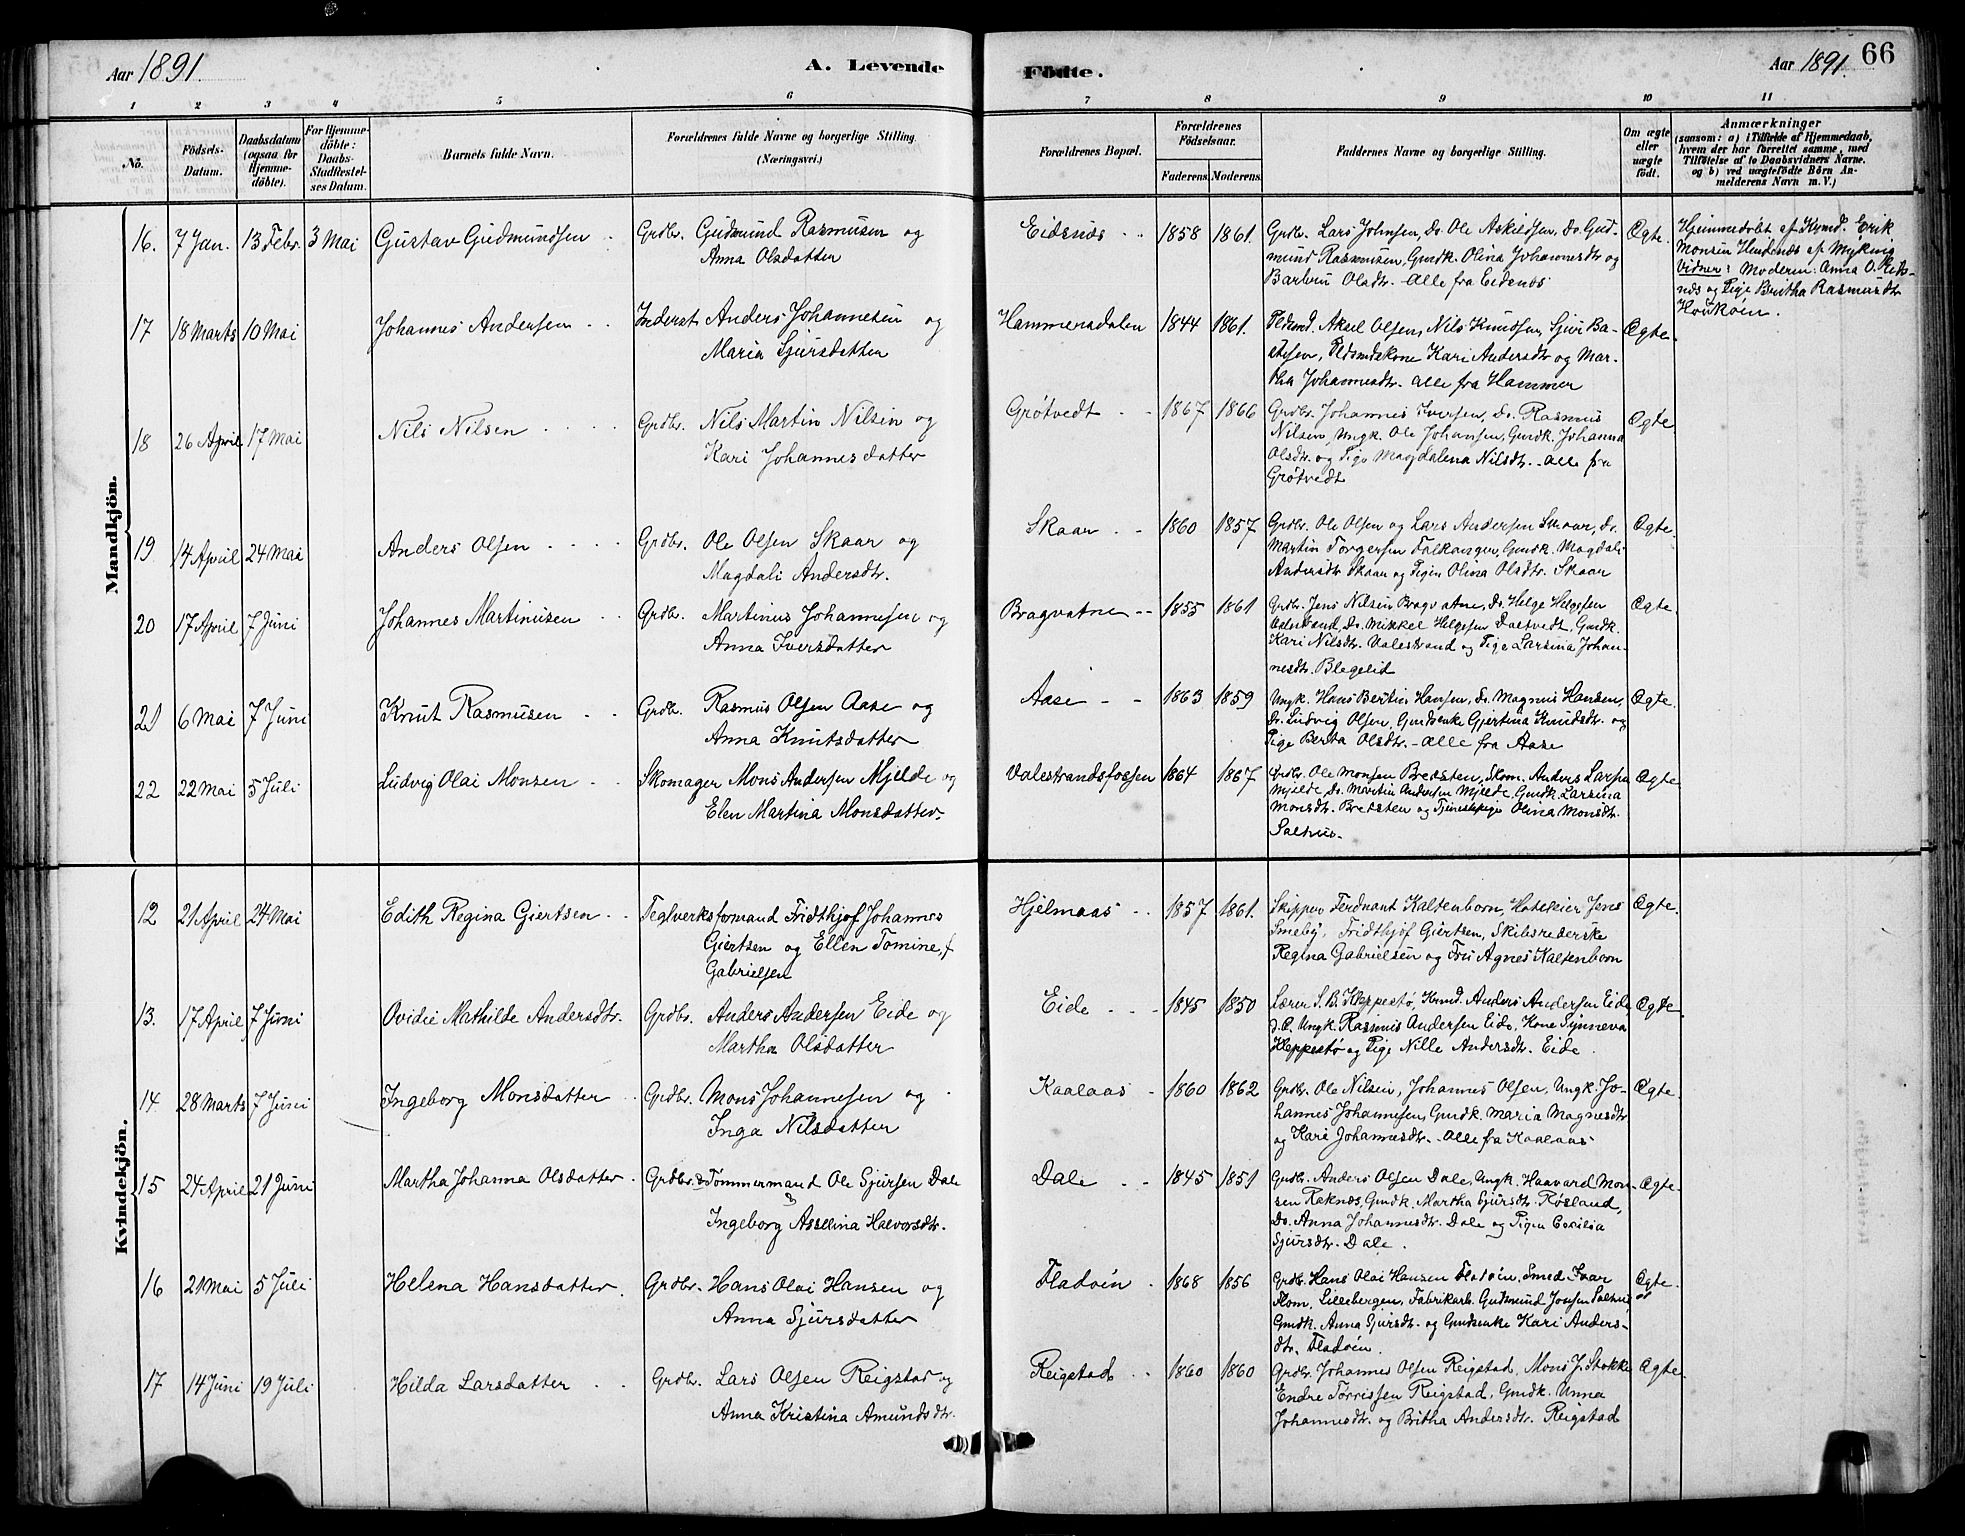 Aar 1891.
A. Levende
Födte.
Aar 1891.
66
1 2 3 4 5 6 7 8 9 10 11
No.
Födsels-Datum.
Daabsdatum (ogsaa for Hjemmedöbte).
For Hjemmedöbte: Daabs-Stadfæstelses Datum.
Barnets fulde Navn.
Forældrenes fulde Navne og borgerlige Stilling.
(Næringsvei.)
Forældrenes Bopæl.
Forældrenes Födselsaar.
Faderens. Moderens.
Faddernes Navne og borgerlige Stilling.
Om ægte eller uægte födt.
Anmærkninger
(saasom: a) i Tilfælde af Hjemmedaab, hvem der har forrettet samme, med Tilföielse af to Daabsvidners Navne. og b) ved uægtefödte Börn Anmelderens Navn m. V.)
Mandkjön.
16. 7 Jan. 13 Febr. 3 Mai Gustav Gudmundsen Grdbr. Gudmund Rasmusen og
Anna Olsdatter
Eidsnæs 1858 1861. Grdbr. Lars Johnsen, Do. Ole Askildsen, Do. Gud-
mund Rasmusen, Gmdk. Olina Johannesdtr og
Barbru Olsdtr. alle fra Eidsnæs
Ægte.
Hjemmedøbt af Krmd. Erik
Monsen Hindenæs af Myking
Vidner: Moderen: Anna O. Eids-
næs og Pige Britha Rasmusdtr
17 18 Marts 10 Mai Johannes Andersen Inderst Anders Johannesen og
Maria Sjursdatter
Hammersdalen 1844 1861. Aksel Olsen, Nils Knudsen, Sjur Ba-
Kari Andersdtr og Mar-
tha Johannesdtr. alle fra Hammer
Ægte.
18 26 April 17 Mai Nils Nilsen Grdbr. Nils Martin Nilsen og
Kari Johannesdatter
Grøtvedt 1867 1866 Grdbr. Johannes Iversen, Do. Rasmus
Nilsen, Ungk. Ole Johansen, Gmdk. Johanna
Olsdtr. og Pige Magdalena Nilsdtr. alle fra
Grøtvedt
Ægte.
19 14 April 24 Mai Anders Olsen Grdbr. Ole Olsen Skaar og
Magdali Andersdtr.
Skaar 1860 1857 Grdbr. Ole Olsen og Lars Andersen Skaar, Do.
Martin Torgersen Falkanger, Gmdk. Magdali
Andersdtr Skaar og Pigen Olina Olsdtr. Skaar
Ægte.
20 17 April 7 Juni Johannes Martinusen Grdbr. Martinus Johannesen og
Anna Iversdatter
Bragvatne 1855 1861 Grdbr. Jens Nilsen Bragvatne, Do. Helge Helgesen
Valestrand, Do. Mikkel Helgesen Gmdk.
Kari Nilsdtr. Valestrand og Pige Larsina Johan-
nesdtr. Blegelid
Ægte
21 6 Mai 7 Juni Knut Rasmusen Grdbr. Rasmus Olsen Aase og
Anna Knutsdatter
Aase 1863 1859 Ungk. Hans Bertin Hansen, Do. Magnus Hansen,
Do. Ludvig Olsen, Gjertina Knudsdtr. og
Pige Berta Olsdtr. - alle fra Aase
Ægte.
22 22 Mai 5 Juli Ludvig Olai Monsen Skomager Mons Andersen Mjelde og
Elen Martina Monsdatter.
Valestrandsfossen 1864 1867 Grdbr. Ole Monsen Bredsten, Skom. Anders Larsen
Mjelde, Do. Martin Andersen Mjelde, Gmdk. Larsina
Monsdtr. Bredsten og Tjenestepige Olina Monsdtr.
Salhus.
Ægte
Kvindekjön.
12 21 April 24 Mai Edith Regina Giertsen Teglverksformand Fridthjof Johannes
Giertsen og Ellen Tomine, f
Gabrielsen
Hjelmaas 1857 1861. Skipper Ferdnant Kaltenborn, Hoteleier Jens
Smeby, Fridthjof Giertsen, Skibsrederske
Regina Gabrielsen og Fru Agnes Kaltenborn
Ægte.
13. 17 April 7 Juni Ovidie Mathilde Andersdtr. Grdbr. Anders Andersen Eide og
Martha Olsdatter
Eide 1845 1850 Lærer S. B. Heppestø, Krmd. Anders Andersen Eide
d. Æ. Ungk. Rasmus Andersen Eide, Kone Synneva
Heppestø og Pige Nille Andersdtr. Eide
Ægte.
14 28 Marts 7 Juni Ingeborg Monsdatter Grdbr. Mons Johannesen og
Inga Nilsdatter
Kaalaas 1860 1862 Grdbr. Ole Nilsen, Johannes Olsen, Ungk. Jo-
hannes Johannesen, Gmdk. Maria Magnesdtr
og Kari Johannesdtr. - alle fra Kaalaas
Ægte.
15 24 April 21 Juni Martha Johanna Olsdatter Grdbr. & Tømmermand Ole Sjursen Dale
&
Ingeborg Asselina Halvorsdtr.
Dale 1845 1851 Grdbr. Anders Olsen Dale, Ungk. Haavard Mon-
sen Raknæs, Gmdk. Martha Sjursdtr. Røsland,
Do. Anna Johannesdtr. Dale og Pigen Cecilia
Sjursdtr. Dale.
Ægte.
16 21 Mai 5 Juli Helena Hansdatter Grdbr. Hans Olai Hansen og
Anna Sjursdatter
Fladøen 1868 1856 Grdbr. Hans Olai Hansen Fladøen, Smed Ivar
Flom, Lillebergen, Fabrikarb. Gudmund Josefsen Salhus
Gmdk. Anna Sjursdtr. og Kari Anders-
dtr. Fladøen.
Ægte
17 14 Juni 19 Juli Hilda Larsdatter Grdbr. Lars Olsen Reigstad og
Anna Kristina Amundsdtr.
Reigstad 1860 1860 Grdbr. Johannes Olsen Reigstad, Mons J. Stokke
Endre Tørrissen Reigstad, Gmdk. Unna
Johannesdtr. og Britha Andersdtr. Reigstad
Ægte.